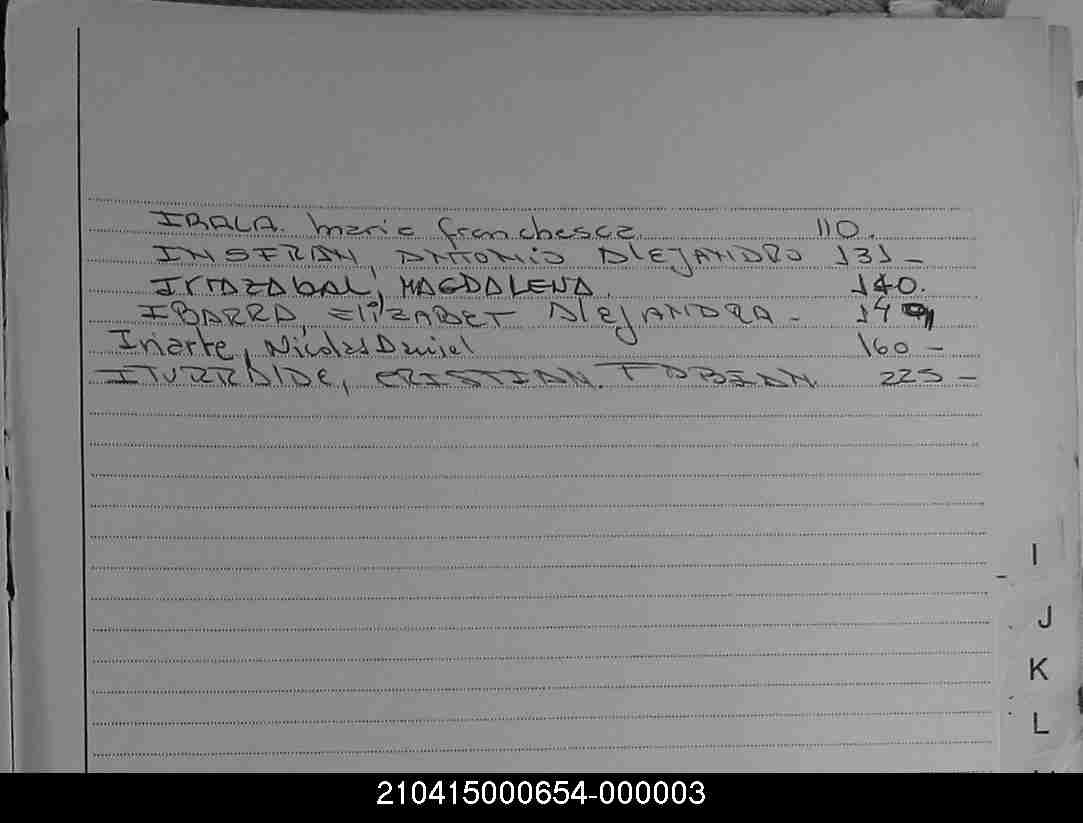 IRALA. maria franchesca 110.
INSFRAN, ANTONIO ALEJANDRO 131 -
IRTAZABAL, MAGDALENA 140.
IBARRA, ELIZABET ALEJANDRA - 149
Iriarte, Nicolas Daniel 160 -
ITURRAIDE, CRISTIAN. FABIAN 225 -
I
J
K
L
210415000654-000003